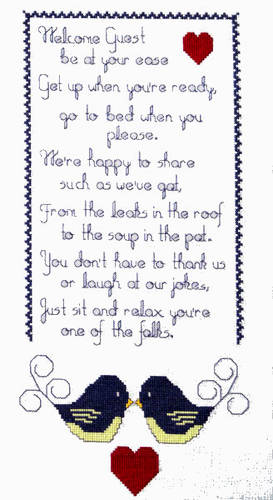 Welcome Guest
be at your ease
Get up when you're ready,
go to bed when you
please.
We're happy to share
such as we've got,
From the leaks in the roof
to the soup in the pot.
You don't have to thank us
or laugh at our jokes,
Just sit and relax you're
one of the folks.